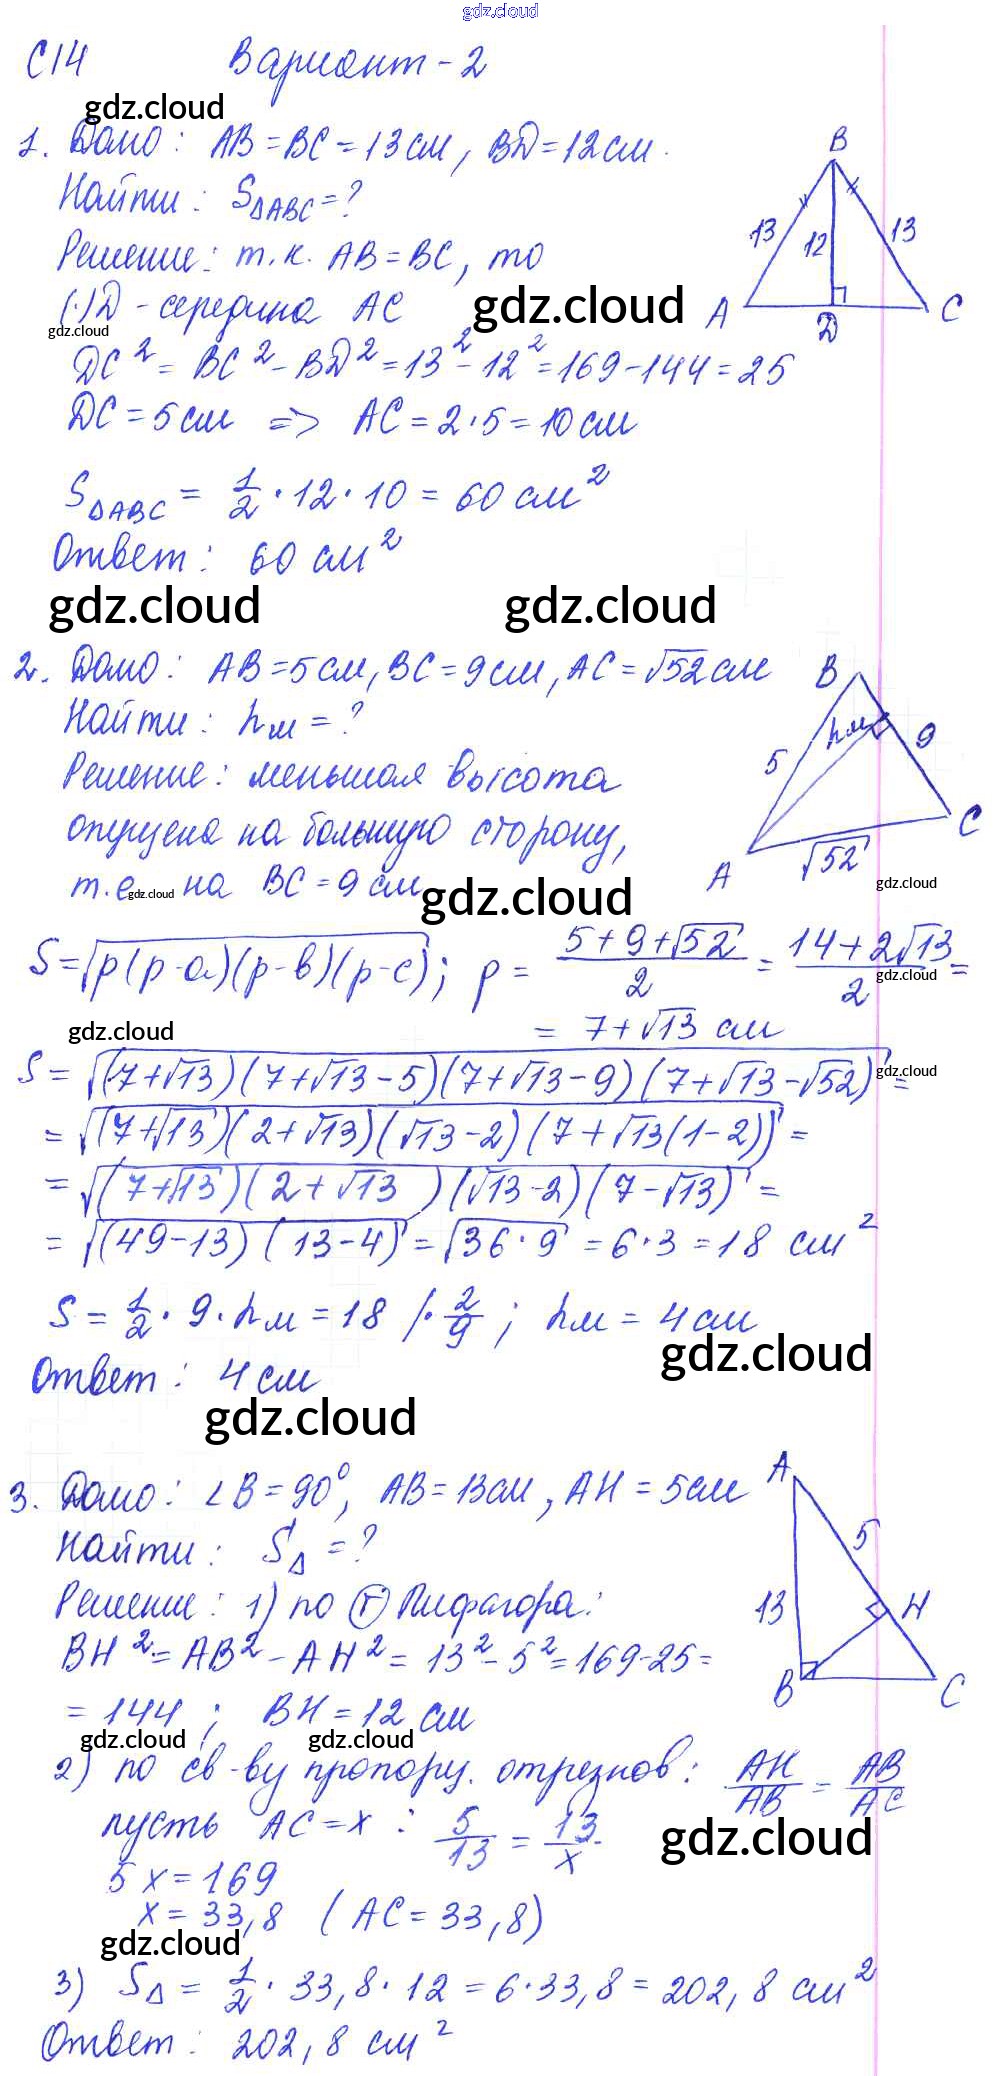 gdz.cloud
С14 Вариант-2
gdz.cloud
1. Дано: AB=BC=13см, BD=12см.
Найти: S△ABC=?
Решение: т.к. AB=BC, то
(·)D-середина AC
gdz.cloud
gdz.cloud
DC²=BC²-BD²=13²-12²=169-144=25
DC=5см => AC=2·5=10см
S△ABC = 1/2·12·10=60 см²
Ответ: 60 см²
B
13 12 13
A D C
gdz.cloud gdz.cloud
2. Дано: AB=5см, BC=9см, AC=√52см
Найти: hм=?
Решение: меньшая высота
опущена на большую сторону,
т.е. на BC=9см
gdz.cloud gdz.cloud gdz.cloud
B
5 hм 9
A √52 C
S=√p(p-a)(p-b)(p-c); p = (5+9+√52)/2 = (14+2√13)/2 =
gdz.cloud
gdz.cloud
= 7+√13 см
S = √(7+√13)(7+√13-5)(7+√13-9)(7+√13-√52) =
gdz.cloud
= √(7+√13)(2+√13)(√13-2)(7+√13(1-2)) =
= √(7+√13)(2+√13)(√13-2)(7-√13) =
= √(49-13)(13-4) = √36·9 = 6·3=18 см²
S = 1/2·9·hм=18 /·2/9; hм = 4см
gdz.cloud
Ответ: 4см
gdz.cloud
3. Дано: ∠B=90⁰, AB=13см, AH=5см
Найти: S△=?
Решение: 1) по Т Пифагора:
BH²=AB²-AH²=13²-5²=169-25=
=144; BH=12см
A
5
13 H
B C
gdz.cloud gdz.cloud
2) по св-ву пропорц. отрезков: AH/AB = AB/AC
пусть AC=x: 5/13 = 13/x
gdz.cloud
5x=169
x=33,8 (AC=33,8)
gdz.cloud
3) S△ = 1/2·33,8·12=6·33,8=202,8 см²
Ответ: 202,8 см²